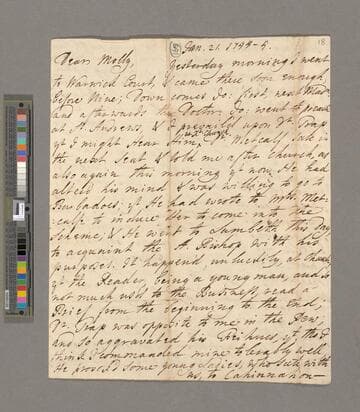 18
Jan. 21. 1744-5.
Dear Molly,
Yesterday morning I went
to Warwick Court, & came there soon enough,
before Nine; Down comes &c: first
and afterwards the Doctor, &c: went to preach
at St Andrews, & I prevail'd upon Dr Trap
yt I might hear Him, Dr Metcalf sate in
the next Seat & told me after Church, as
also again this morning yt now He had
alter'd his mind & was willing to go to
Barbadoes; yt He had wrote to Mrs Met-
calfe to induce Her to come into the
Scheme, & He went to Lambeth this Day
to acquaint the A. Bishop with his
purposes. It happen'd unluckily at Church
yt the Reader being a young man, and
not much us'd to the Business, read a
Brief from the beginning to the End,
Dr. Trap was opposite to me in the Pew,
and so aggravated his
think I commanded mine tolerably well
He provok'd some young Ladies, who sate with
us, to Cachinnation